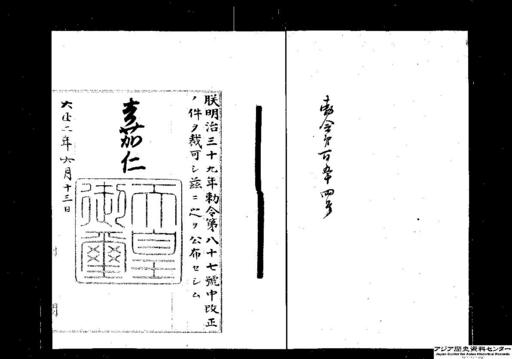 勅令第百五十四号
朕明治三十九年勅令第八十七號中改正
ノ件ヲ裁可シ茲ニ之ヲ公布セシム
嘉仁
天皇
御璽
大正二年六月十三日
アジア歴史資料センター
Japan Center for Asian Historical Records